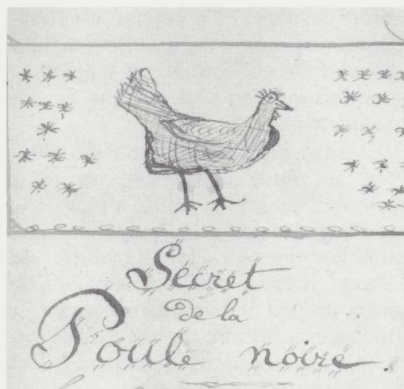 Secret
de la
Poule noire.